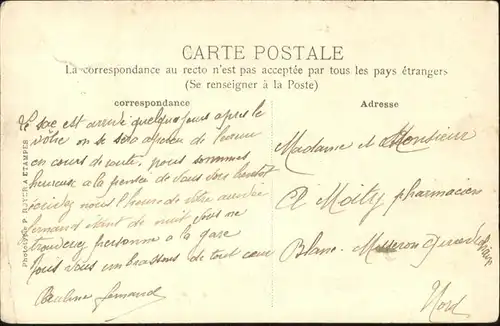 CARTE POSTALE
La correspondance au recto n'est pas acceptée par tous les pays étrangers
(Se renseigner à la Poste)
correspondance
Adresse
Le sac est arrivé quelques jours après le
vôtre on se sera aperçu de
en cours de route, nous sommes
heureuse a la pensée de vous voir bientôt
écrivez nous l'heure de votre arrivée
Fernand étant de nuit vous ne
trouverez personne a la gare
Nous vous embrassons de tout cœur
Pauline Fernand
Madame et Monsieur
A Moity pharmacien
Blanc-Misseron
Nord